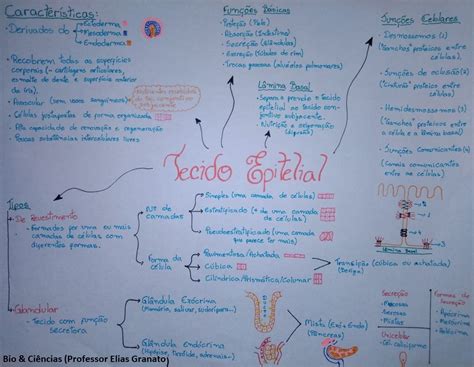 Características:
• Derivados do
Ectoderma
Mesoderma
Endoderma
• Recobrem todas as superfícies
corporais (- cartilagens articulares,
esmalte do dente e superfície anterior
da íris).
• Avascular (sem vasos sanguíneos)
• Células justapostas de forma organizada
• Alta capacidade de renovação e regeneração
• Pouca substâncias intercelulares livres
Funções Básicas
• Proteção (Pele)
• Absorção (Intestino)
• Secreção (Glândulas)
• Excreção (túbulos renais)
• Trocas gasosas (alvéolos pulmonares)
Lâmina Basal
• Separa e prende o tecido
epitelial ao tecido con-
juntivo subjacente.
• Nutrição e oxigenação
(difusão)
Junções Celulares
• Desmossomos (1)
("Ganchos" proteicos entre
células).
• Junções de oclusão(2)
("cinturões" proteicos entre
células)
• Hemidesmossomos (3)
("Ganchos" proteicos entre
a célula e a lâmina basal)
• Junções Comunicantes(4)
(Canais comunicantes
entre as células)
Tecido Epitelial
Tipos
• De Revestimento
• Formados por uma ou mais
camadas de células com
diferentes formas.
Nº de
camadas
Simples (uma camada de células)
Estratificado (+ de uma camada
de células)
Pseudoestratificado (uma camada
que parece ter mais)
Forma da
célula
Pavimentosa/Achatada
Cúbica
Cilíndrica/Prismática/Colunar
Transição (cúbica ou achatada)
(Bexiga)
• Glandular
• Tecido com função
secretora
Glândula Exócrina
(Mamária, salivar, sudorípara...)
Glândula Endócrina
(Hipófise, tireóide, adrenais...)
Mista (End + Exo)
(Pâncreas)
1
2
3
4
Lâmina Basal
Secreção
• Mucosa
• Serosa
Unicelular
• Cél. caliciforme
• Apócrina
• Holócrina
Bio & Ciências (Professor Elias Granato)